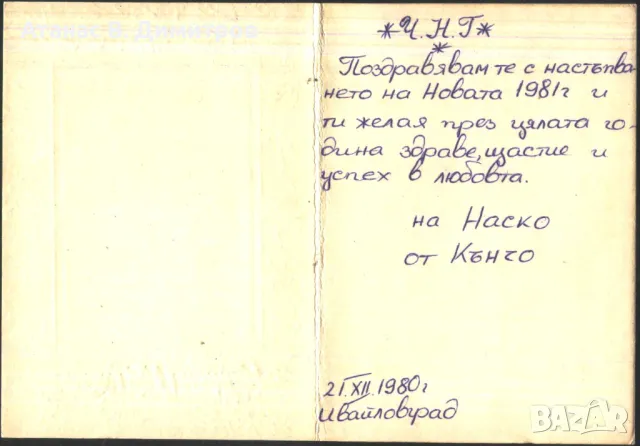 *Ч.Н.Г*
*
Поздравявам те с настъпва-
нето на Новата 1981г и
ти желая през цялата го-
дина здраве, щастие и
успех в любовта.
на Наско
от Кънчо
21.XII.1980г
Ивайловград
BAZAR